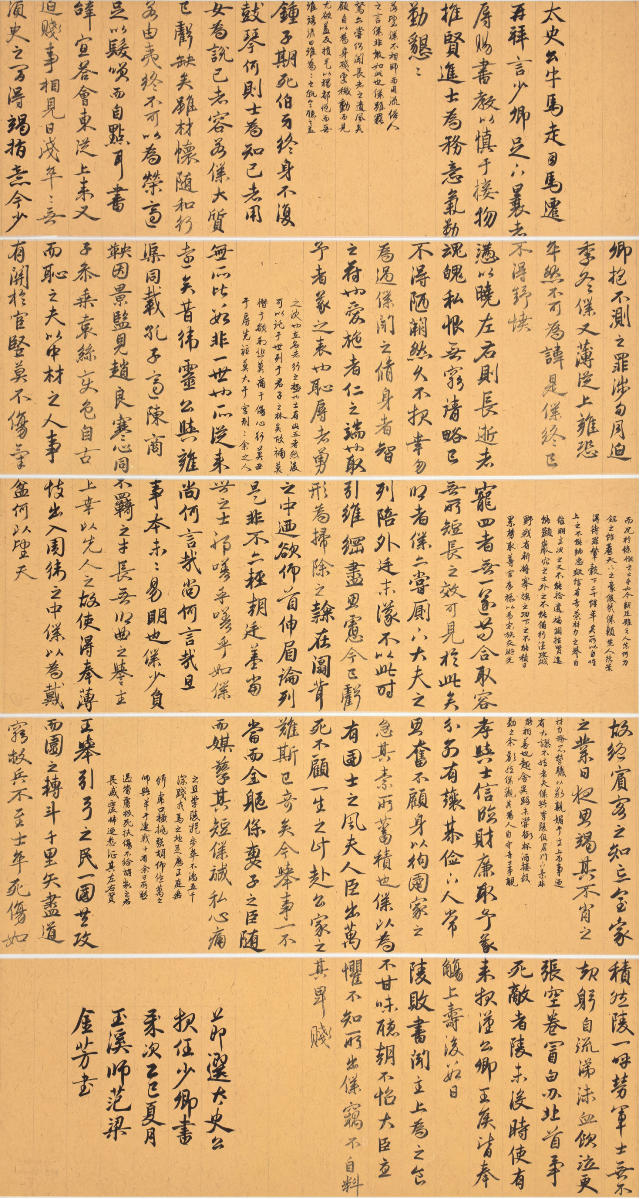 太史公牛馬走司馬遷
再拜言少卿足下曩者
辱賜書教以慎于接物
推賢進士為務意氣勤
勤懇〻
若望僕不相師而用流俗人
之言僕非敢如此也僕雖罷
駑亦嘗側聞長者之遺風矣
顧自以為身殘處穢動而見
尤欲益反損是以抑鬱而無
誰語諺曰誰為〻之孰令聽之蓋
鍾子期死伯牙終身不復
鼓琴何則士為知己者用
女為說己者容若僕大質
已虧缺矣雖材懷隨和行
若由夷終不可以為榮適
足以髮笑而自點耳書
辭宜答會東從上來又
迫賤事相見日淺卒〻無
須臾之間得竭指意今少
卿抱不測之罪涉旬月迫
季冬僕又薄從上雍恐
卒然不可為諱是僕終已
不得舒憤
懣以曉左右則長逝者
魂魄私恨無窮請略已
不得陋闕然久不報幸勿
為過僕聞之脩身者智
之符也愛施者仁之端也取
予者義之表也恥辱者勇
之決也立名者行之極也士有此五者然後
可以託于世列于君子之林矣故禍莫
憯于欲利悲莫痛于傷心行莫丑
于辱先詬莫大于宮刑〻餘之人
無所比數非一世也所從來
遠矣昔衛靈公與雍
渠同載孔子適陳商
鞅因景監見趙良寒心同
子參乘袁絲變色自古
而恥之夫以中材之人事
有關於宦豎莫不傷氣
而況於慷慨之士乎如今朝廷雖乏人奈何刀
鋸之餘薦天下之豪俊哉僕賴先人緒業
得待罪輦轂下二十餘年矣所以自惟
上之不能納忠效信有奇策材力之譽自
結明主次之又不能拾遺補闕招賢進
能顯巖穴之士外之不能備行伍攻城
野戰有斬將搴旗之功下之不能積日
累勞取尊官厚祿以為宗族交遊光
寵四者無一遂茍合取容
無所短長之效可見於此矣
嚮者僕亦嘗廁下大夫之
列陪外廷末議不以此時
引維綱盡思慮今已虧
形為掃除之隸在闒茸
之中迺欲仰首伸眉論列
是非不亦輕朝廷羞當
世之士邪嗟乎嗟乎如僕
尚何言哉尚何言哉且
事本末未易明也僕少負
不羈之才長無鄉曲之譽主
上幸以先人之故使得奉薄
技出入周衛之中僕以為戴
盆何以望天
故絕賓客之知忘室家
之業日夜思竭其不肖之
材力務一心營職以求親媚于主上而事乃
有大謬不然者夫僕與李陵俱居門下素非
能相善也趣舍異路未嘗銜杯酒接殷
勤之余歡然僕觀其為人自守奇士事親
孝與士信臨財廉取予義
分別有讓恭儉下人常
思奮不顧身以徇國家之
急其素所蓄積也僕以為
有國士之風夫人臣出萬
死不顧一生之計赴公家之
難斯已奇矣今舉事一不
當而全軀保妻子之臣隨
而媒孽其短僕誠私心痛
之且李陵提步卒不滿五千
深踐戎馬之地足歷王庭垂
餌虎口橫挑強胡仰億萬之
師與單于連戰十有餘日所殺
過當虜救死扶傷不給旃裘之君
長咸震怖迺悉徵其左右賢
王舉引弓之民一國共攻
而圍之轉鬥千里矢盡道
窮救兵不至士卒死傷如
積然陵一呼勞軍士無不
起躬自流涕沬血飲泣更
張空弮冒白刃北首爭
死敵者陵未沒時使有
來報漢公卿王侯皆奉
觴上壽後數日
陵敗書聞主上為之食
不甘味聽朝不怡大臣憂
懼不知所出僕竊不自料
其卑賤
節選太史公
報任少卿書
歲次乙巳夏月
玉溪師范梁
金芳書